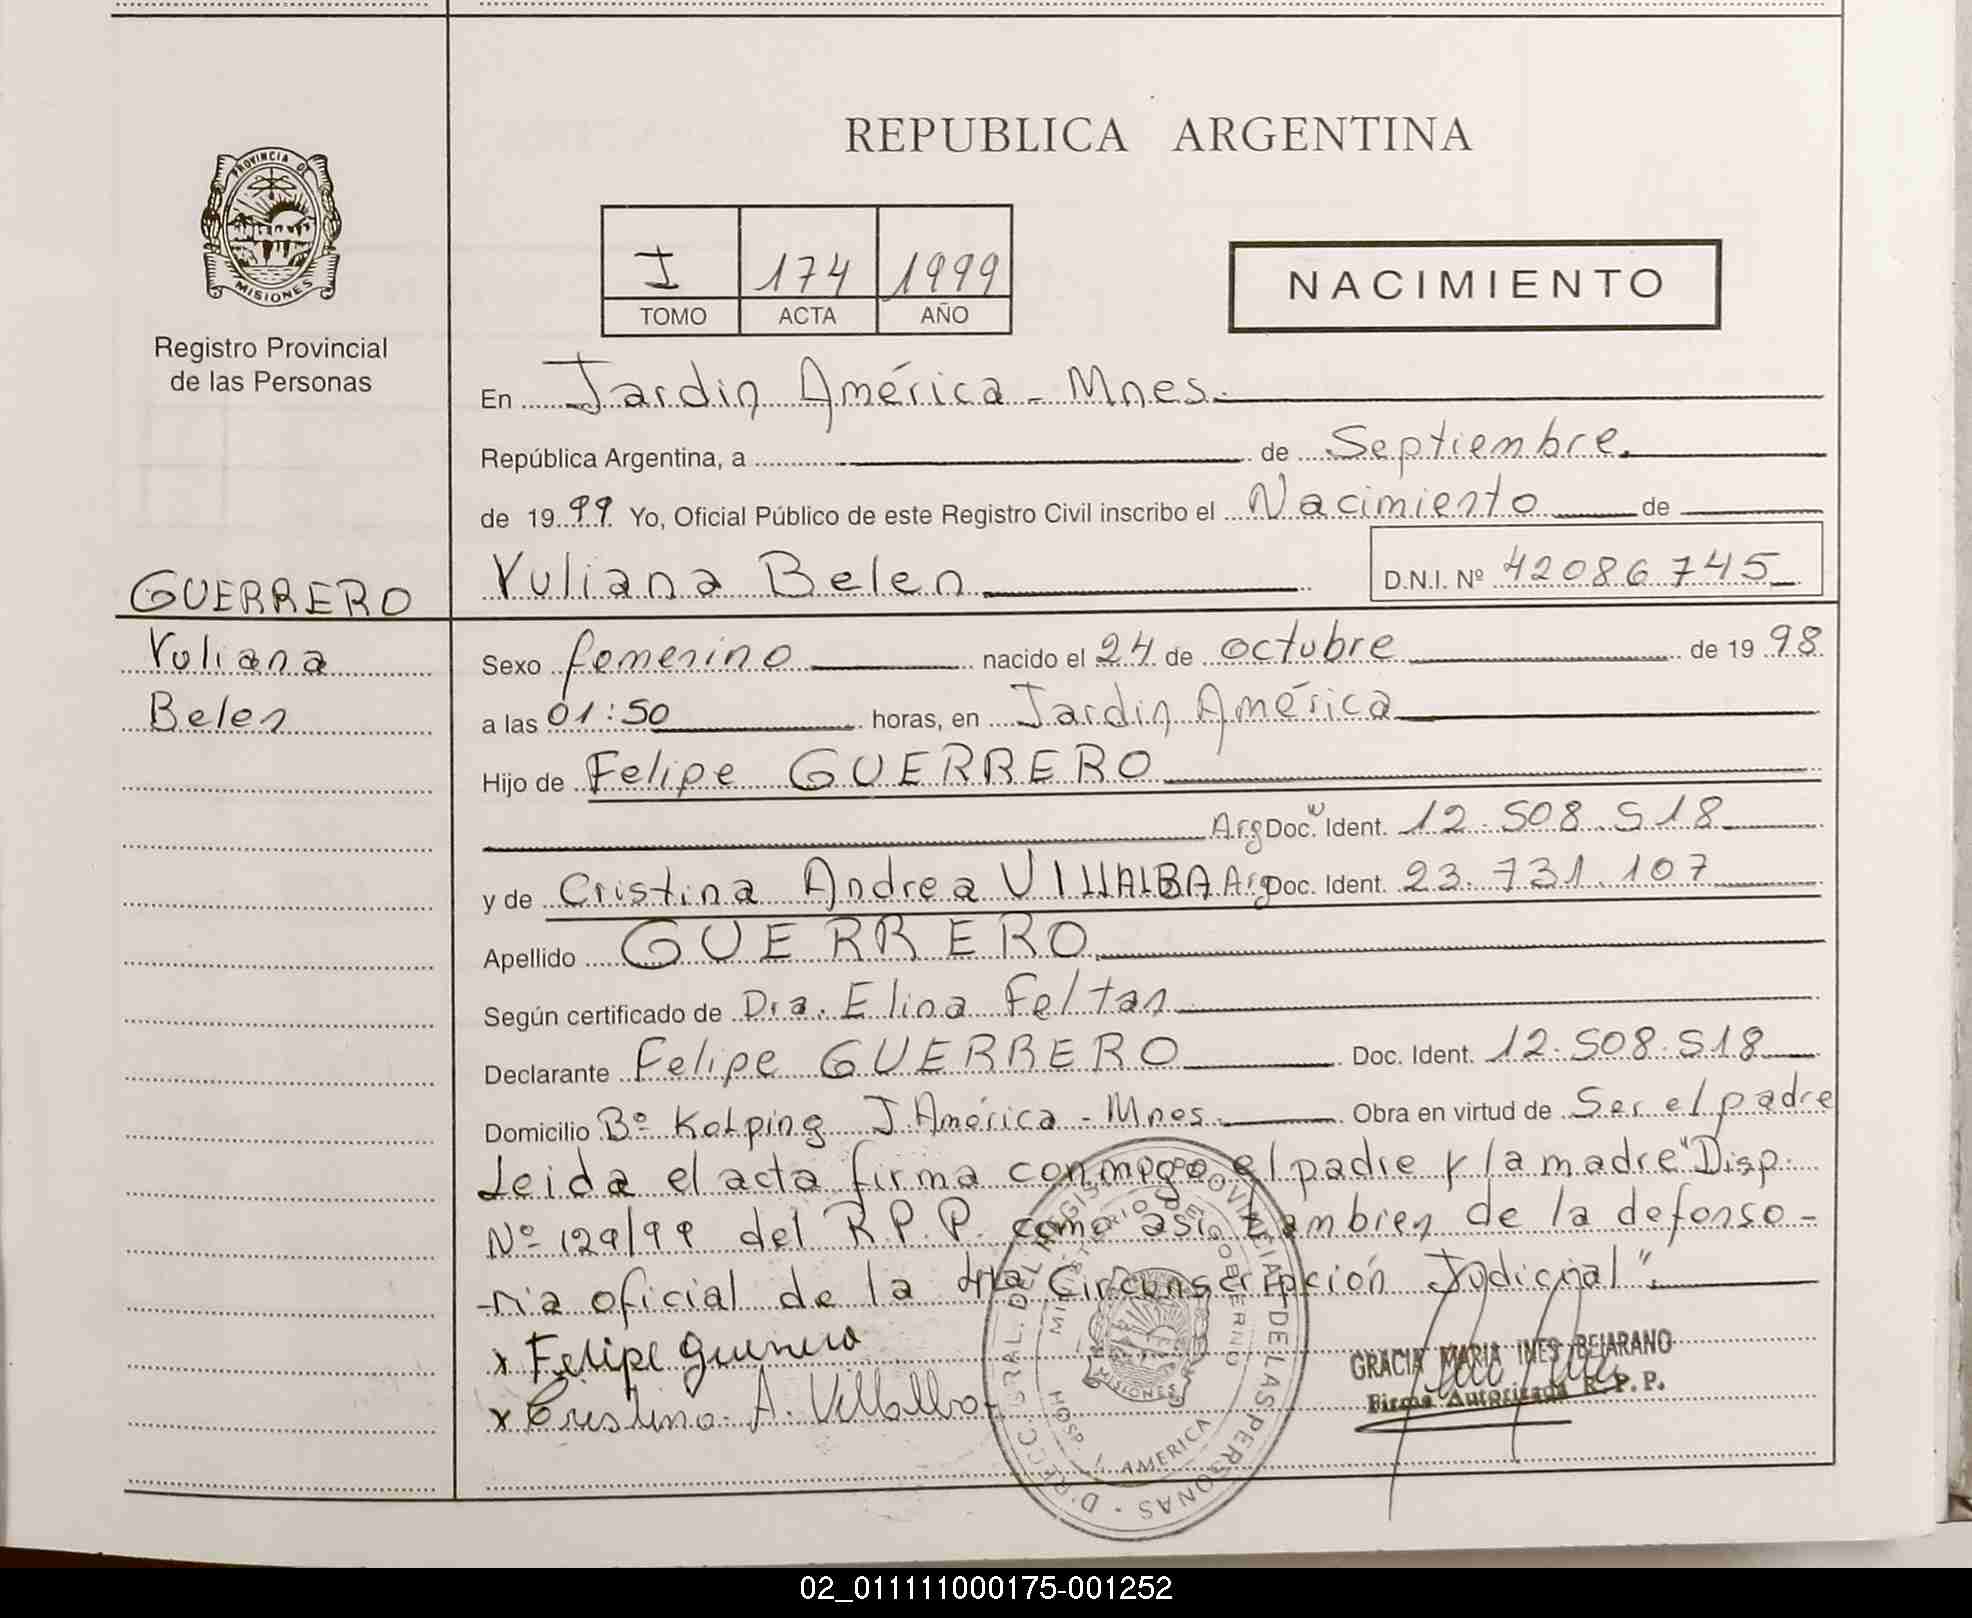 REPUBLICA ARGENTINA
PROVINCIA DE
MISIONES
Registro Provincial
de las Personas
I 174 1999
TOMO ACTA AÑO
NACIMIENTO
En Jardin América - Mnes.
República Argentina, a de Septiembre.
de 1999 Yo, Oficial Público de este Registro Civil inscribo el Nacimiento de
GUERRERO
Yuliana
Belen
Yuliana Belen D.N.I. Nº 42086745
Sexo femenino nacido el 24 de octubre de 1998
a las 01:50 horas, en Jardin América
Hijo de Felipe GUERRERO
Arg Doc. Ident. 12.508.518
y de Cristina Andrea VILLALBA Arg Doc. Ident. 23.731.107
Apellido GUERRERO
Según certificado de Dra. Elina Feltan
Declarante Felipe GUERRERO Doc. Ident. 12.508.518
Domicilio Bº Kolping J. América - Mnes. Obra en virtud de Ser el padre
Leida el acta firma conmigo el padre y la madre "Disp.
Nº 129/99 del R.P.P. como asi tambien de la defenso-
-ria oficial de la 4ta Circunscripción Judicial".
x Felipe Guerrero
x Cristina A. Villalba
GRACIA MARIA INES BEJARANO
Firma Autorizada R.P.P.
DIRECC. GRAL. DEL REGISTRO PROVINCIAL DE LAS PERSONAS
MINISTERIO DE GOBIERNO
MISIONES
HOSP. J. AMERICA
02_011111000175-001252